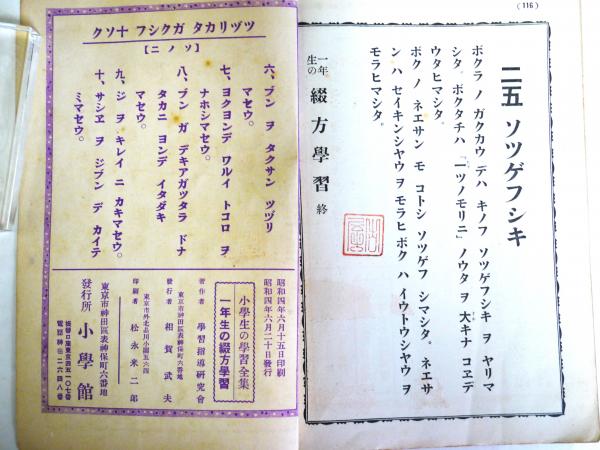 (116)
二五 ソツゲフシキ
ボクラノ ガクカウ デハ キノフ ソツゲフシキ ヲ ヤリマ
シタ。ボクタチハ 「一ツノモリニ」ノウタ ヲ 大キナ コヱデ
ウタヒマシタ。
ボク ノ ネエサン モ コトシ ソツゲフ シマシタ。ネエサ
ン ハ セイキンシヤウ ヲ モラヒ ボク ハ イウトウシヤウ ヲ
モラヒマシタ。
一年生の 綴方學習 終
ツヅリカタ ガクシフ 十ソク
【ソノ二】
六、ブン ヲ タクサン ツヅリ
マセウ。
七、ヨクヨンデ ワルイ トコロ ヲ
ナホシマセウ。
八、ブン ガ デキアガツタラ ドナ
タカニ ヨンデ イタダキ
マセウ。
九、ジ ヲ キレイ ニ カキマセウ。
十、サシヱ ヲ ジブン デ カイテ
ミマセウ。
昭和四年六月十五日印刷
昭和四年六月二十日發行
小學生の學習全集
一年生の綴方學習
著作者 學習指導研究會
東京市神田區表神保町六番地
發行者 相賀武夫
印刷者 松永米二郎
東京市神田區表神保町六番地
發行所 小學館